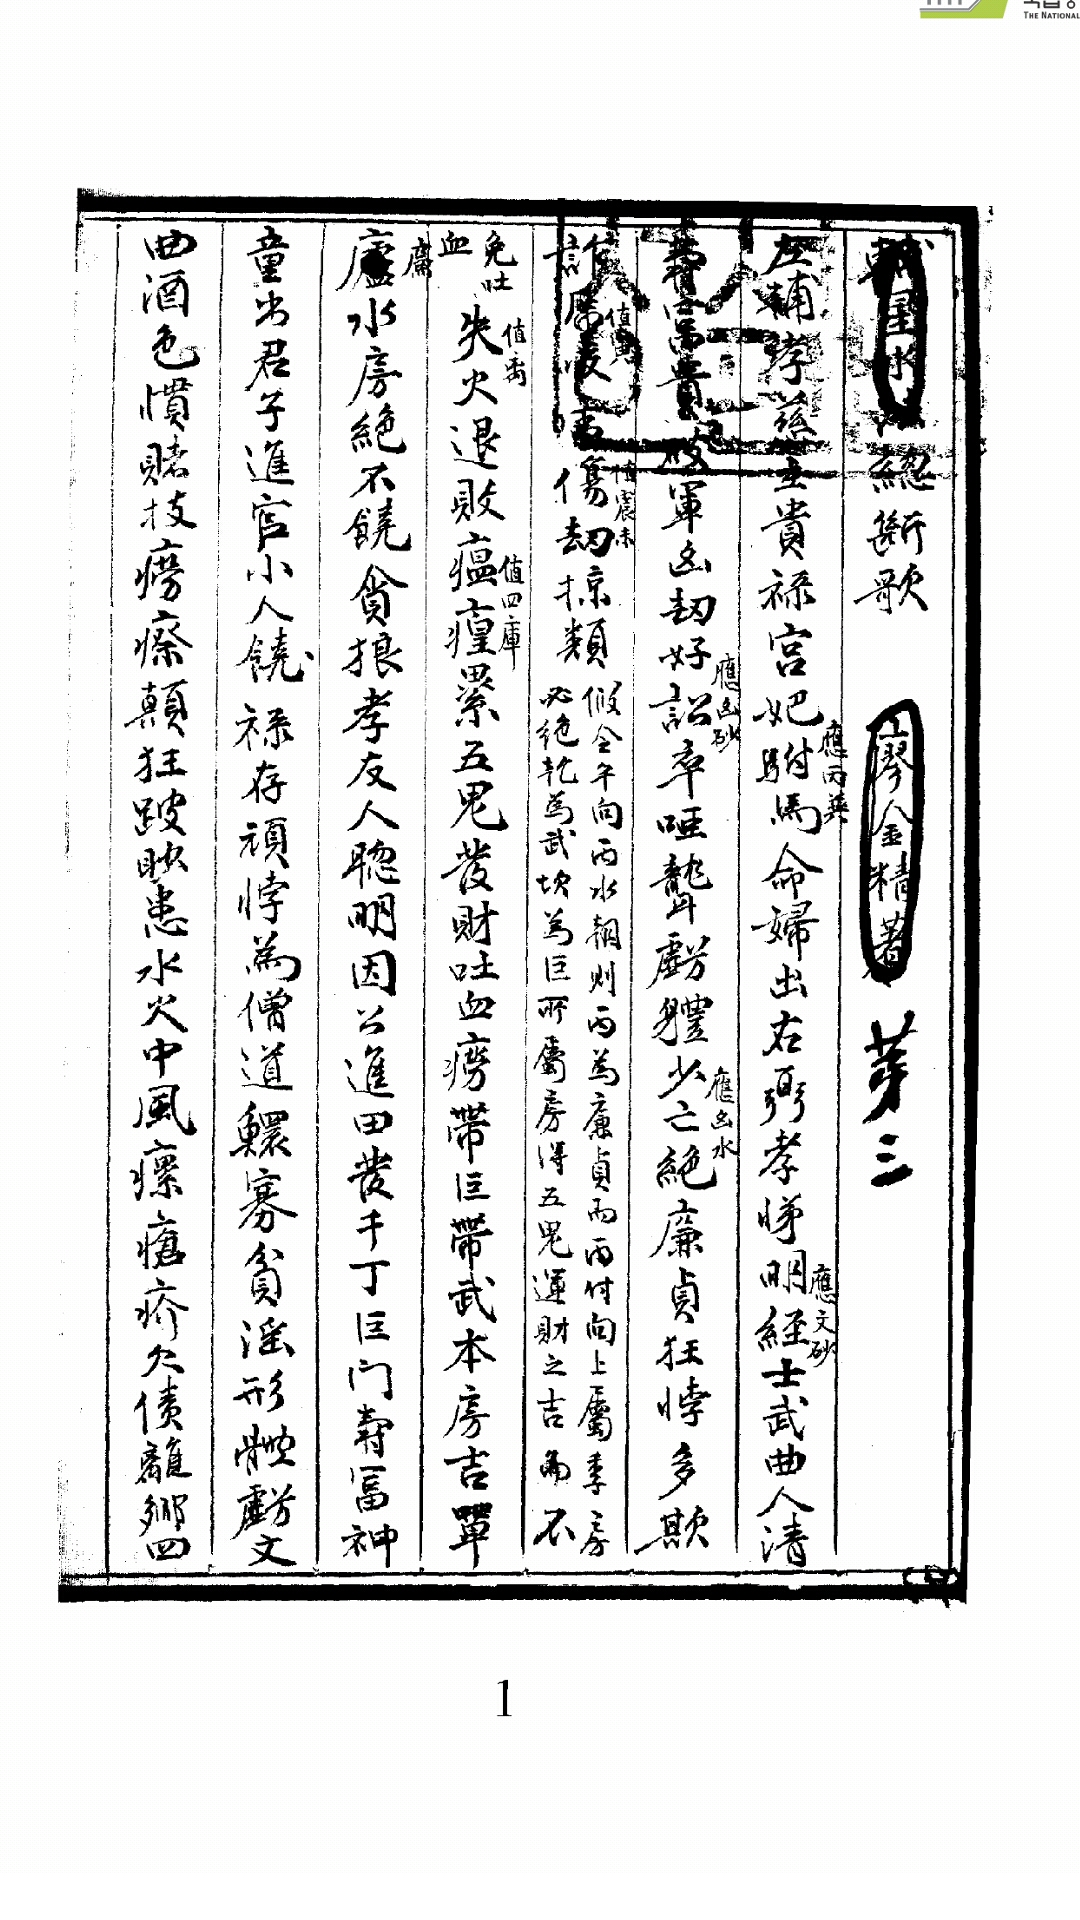 THE NATIONAL
輔星水法總斷歌 廖金精著 第三
左輔孝慈主貴祿宮妃駙馬命婦出右弼孝悌明經士武曲人清
應丙葵
應文砂
壽富貴破軍凶劫好訟卒啞聾虧體少亡絕廉貞狂悖多欺
應凶砂
應凶水
詐 傷劫掠類
值震未
假令午向丙水朝則丙為廉貞而丙付向上屬季房
必絕乾為武坎為巨所屬房得五鬼運財之吉而不
免吐
血
失火退敗瘟𤶊累五鬼發財吐血癆帶巨帶武本房吉單
值四庫
廬水房絕不饒貪狼孝友人聰明因公進田發千丁巨门壽富神
童出君子進官小人饒祿存頑悖為僧道鰥寡貧淫形體虧文
曲酒色慣賭技癆瘵顛狂跛眇患水火中風瘰瘡疥欠債離鄉四
1